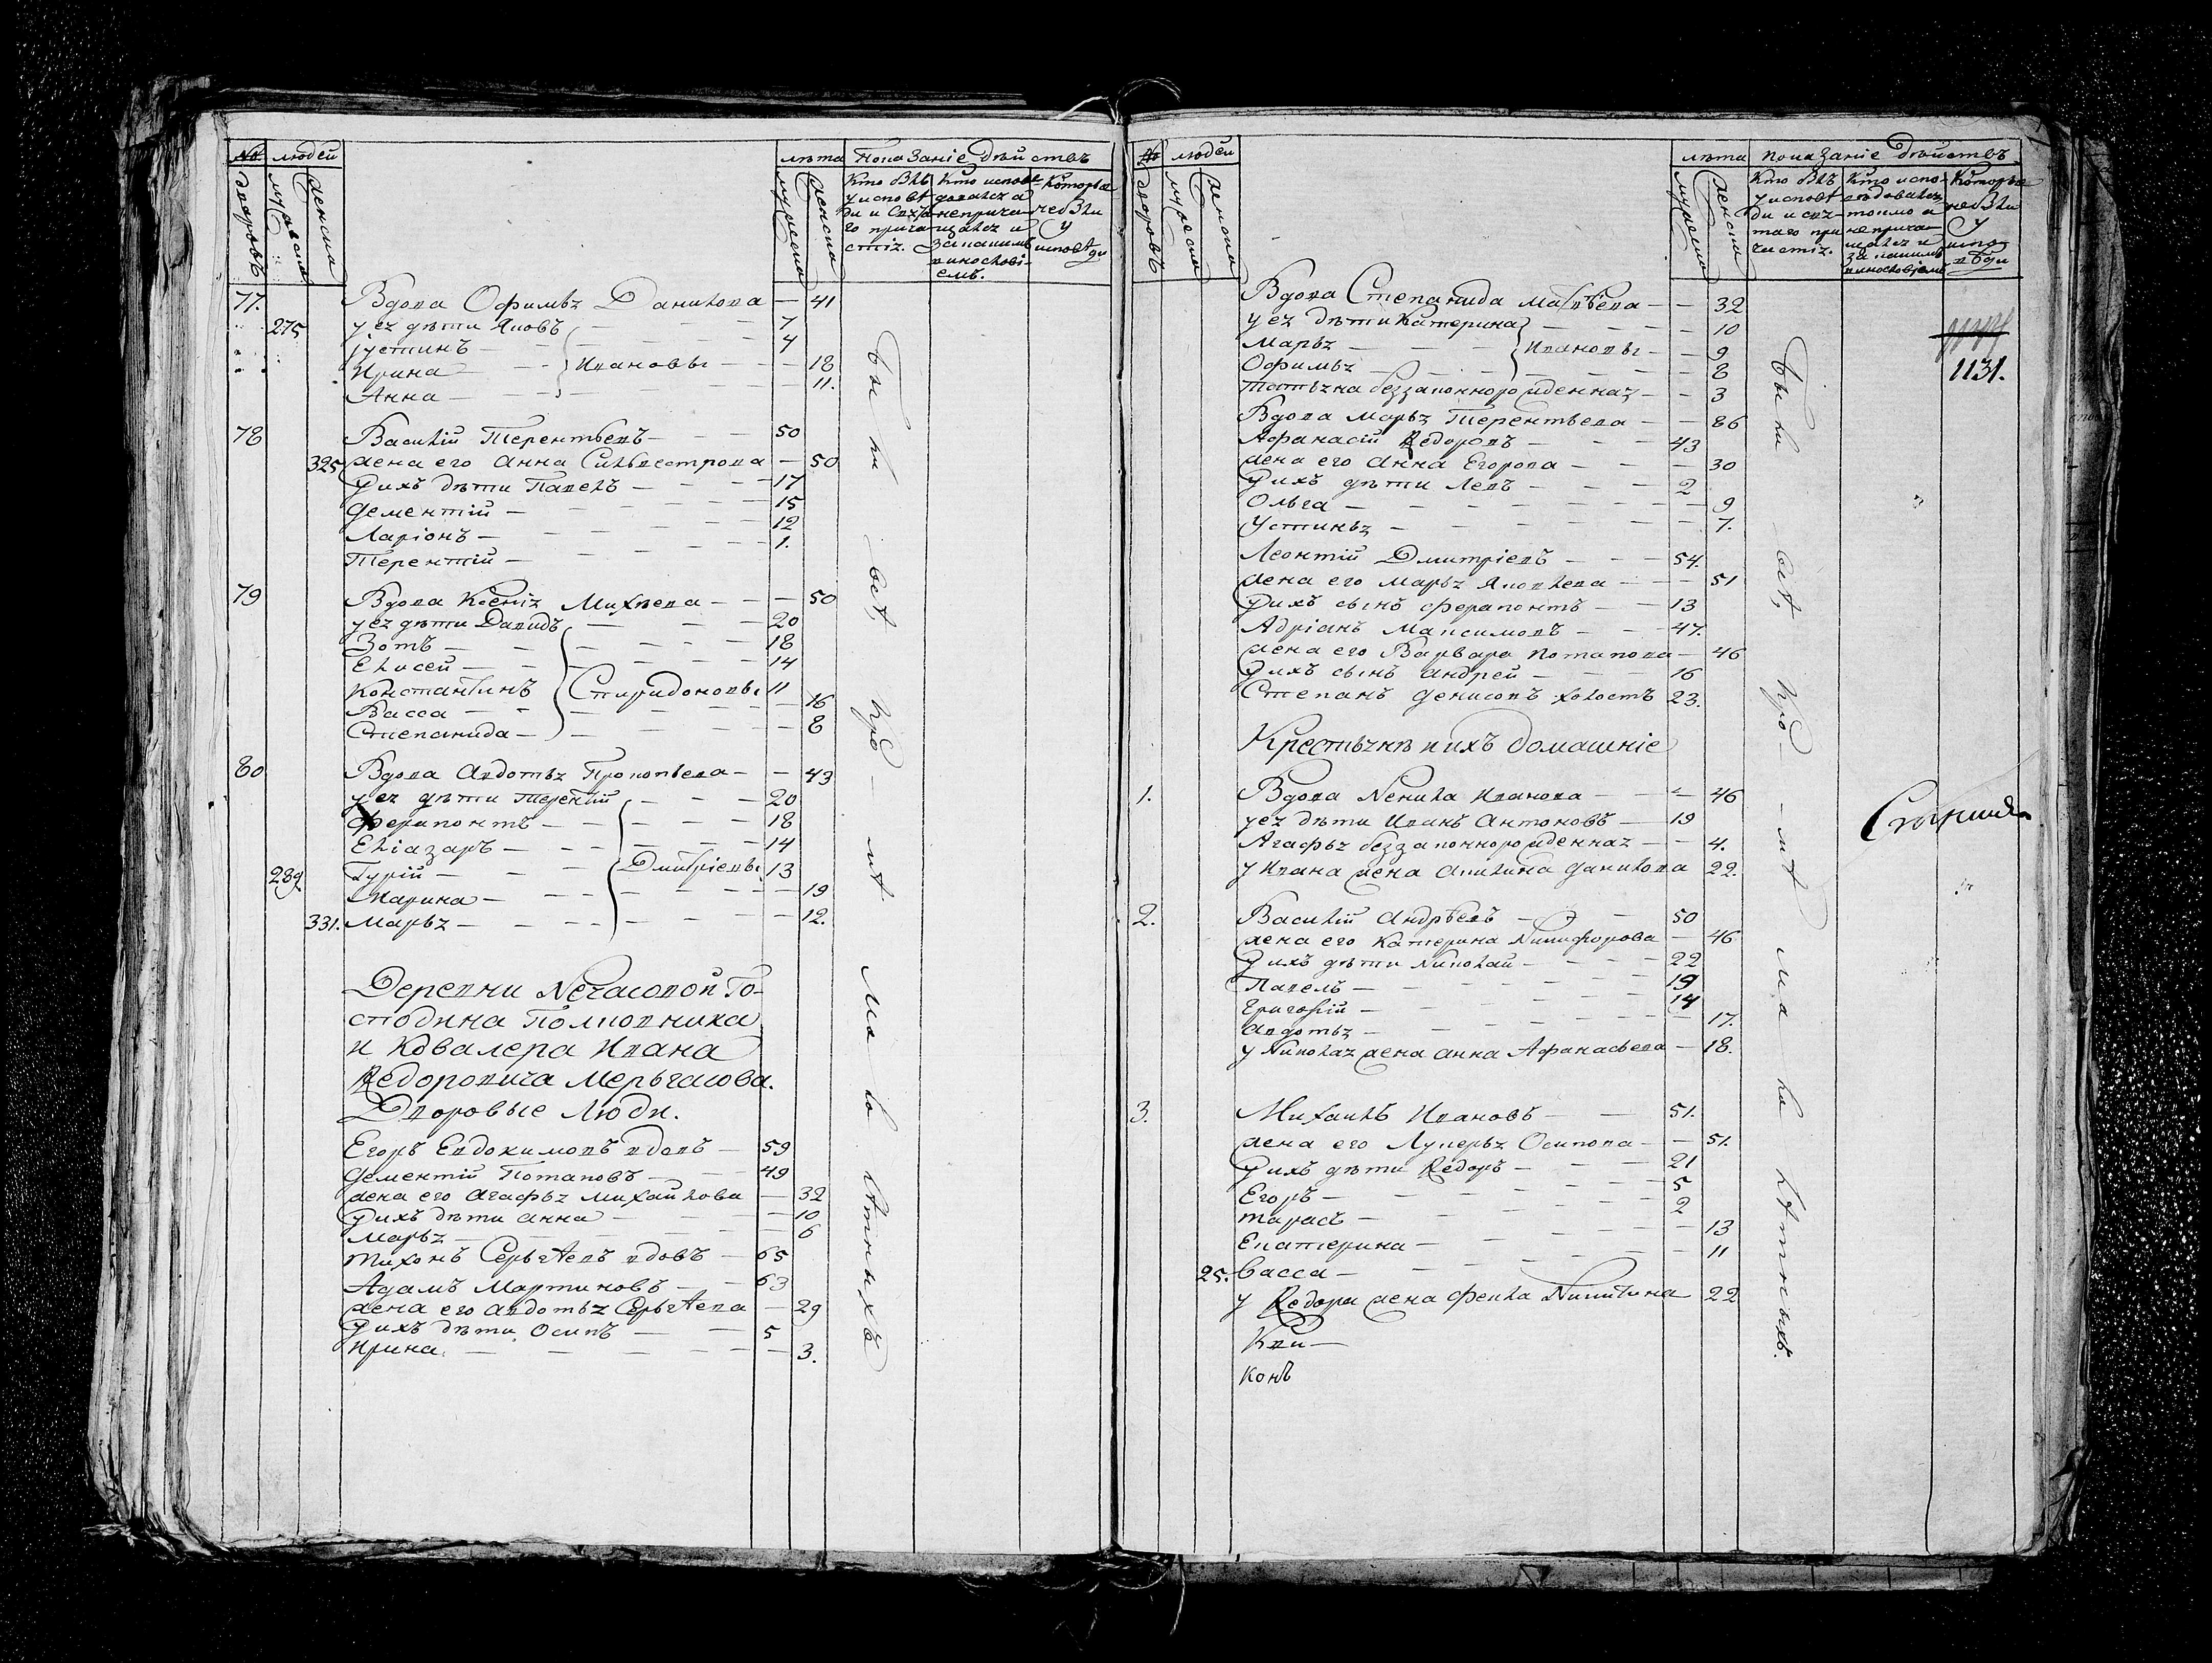 № людей лѣта Показаніе дѣйствъ
дворовъ мужеска женска мужеска женска
Кто былъ у исповѣди и святаго причастія.
Кто исповѣдался а непричащался и за какимъ винословіемъ.
Которые небыли у исповѣди
77. Вдова Офимья Данилова — 41
275 у ея дѣти Яковъ — 7
Іустинъ — 4
Ирина — Ивановы — 18
Анна — 11.
78 Василій Терентьевъ — 50
325 жена его Анна Сильвестрова — 50
у ихъ дѣти Павелъ — 17
Дементій — 15
Ларіонъ — 12
Терентій — 1.
79 Вдова Ксенія Михѣева — 50
у ея дѣти Давидъ — 20
Зотъ — 18
Елисей — 14
Константинъ Спиридоновы 11
Васса — 16
Степанида — 8
80 Вдова Авдотья Прокопьева — 43
у ея дѣти Терентій — 20
Ферапонтъ — 18
Еліазаръ — 14
289 Гурій — Дмитріевы 13
Марина — 19
331. Марья — 12.
Деревни Нечасовой Го-
сподина Полковника
и Ковалера Ивана
Ѳедоровича Мерьгасова.
Дворовые Люди.
Егоръ Евдокимовъ вдовъ — 59
Дементій Потаповъ — 49
жена его Агафья Михайлова — 32
у ихъ дѣти Анна — 10
Марья — 6
Тихонъ Серьгѣевъ вдовъ — 65
Адамъ Мартиновъ — 63
жена его Авдотья Серьгѣева — 29
у ихъ дѣти Осипъ — 5
Ирина — 3.
были всѣ, кро-мѣ малолѣтныхъ
№ людей лѣта показаніе дѣйствъ
дворовъ мужеска женска мужеска женска
Кто былъ у исповѣди и святаго причастія.
Кто исповѣдовался токмо а непричащался и за какимъ винословіемъ
Которые небыли у исповѣди
Вдова Степанида Матвѣева — 32
у ея дѣти Катерина — 10
Марья — Ивановы — 9
Офимья — 8
1131.
Татьяна беззаконнорожденная — 3
Вдова Марья Терентьева — 86
Афанасій Ѳедоровъ — 43
жена его Анна Егорова — 30
у ихъ дѣти Левъ — 2
Ольга — 9
Устинья — 7.
Леонтій Дмитріевъ — 54.
жена его Марья Яковлева — 51
у ихъ сынъ Ферапонтъ — 13
Адріанъ Максимовъ — 47.
жена его Варвара Потапова — 46
у ихъ сынъ Андрей — 16
Степанъ Денисовъ холостъ 23.
Крестьянѣ и ихъ домашніе
1. Вдова Ненила Иванова — 46
у ея дѣти Иванъ Антоновъ — 19
Агафья беззаконнорожденная — 4.
у Ивана жена Акилина Данилова 22.
2. Василій Андрѣевъ — 50
жена его Катерина Никифорова — 46
у ихъ дѣти Николай — 22
Павелъ — 19
Григорій — 14
Авдотья — 17.
у Николая жена Анна Афанасьева — 18.
3. Михаилъ Ивановъ — 51.
жена его Лукерья Осипова — 51.
у ихъ дѣти Ѳедоръ — 21
Егоръ — 5
Тарасъ — 2
Екатерина — 13
25. Васса — 11
у Ѳедора жена Фекла Никитина 22
были всѣ, кро-мѣ малолѣтныхъ.